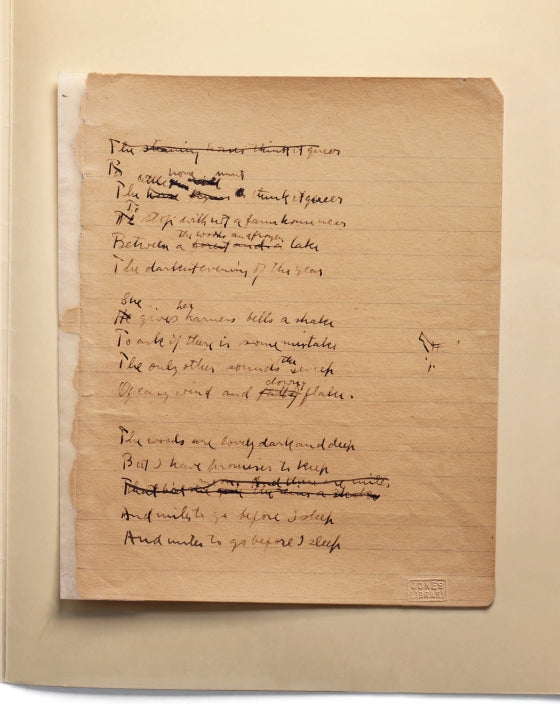 The steaming horses think it queer
To
The horse begins to think it queer
little horse must
To stop with not a farmhouse near
the woods and frozen
Between a forest and a lake
The darkest evening of the year
She her
He gives harness bells a shake
To ask if there is some mistake
the
The only other sounds sweep
downy
Of easy wind and falling flake.
The woods are lovely dark and deep
But I have promises to keep
And there are miles
That bid me give the reins a shake
And miles to go before I sleep
And miles to go before I sleep
JONES
LIBRARY